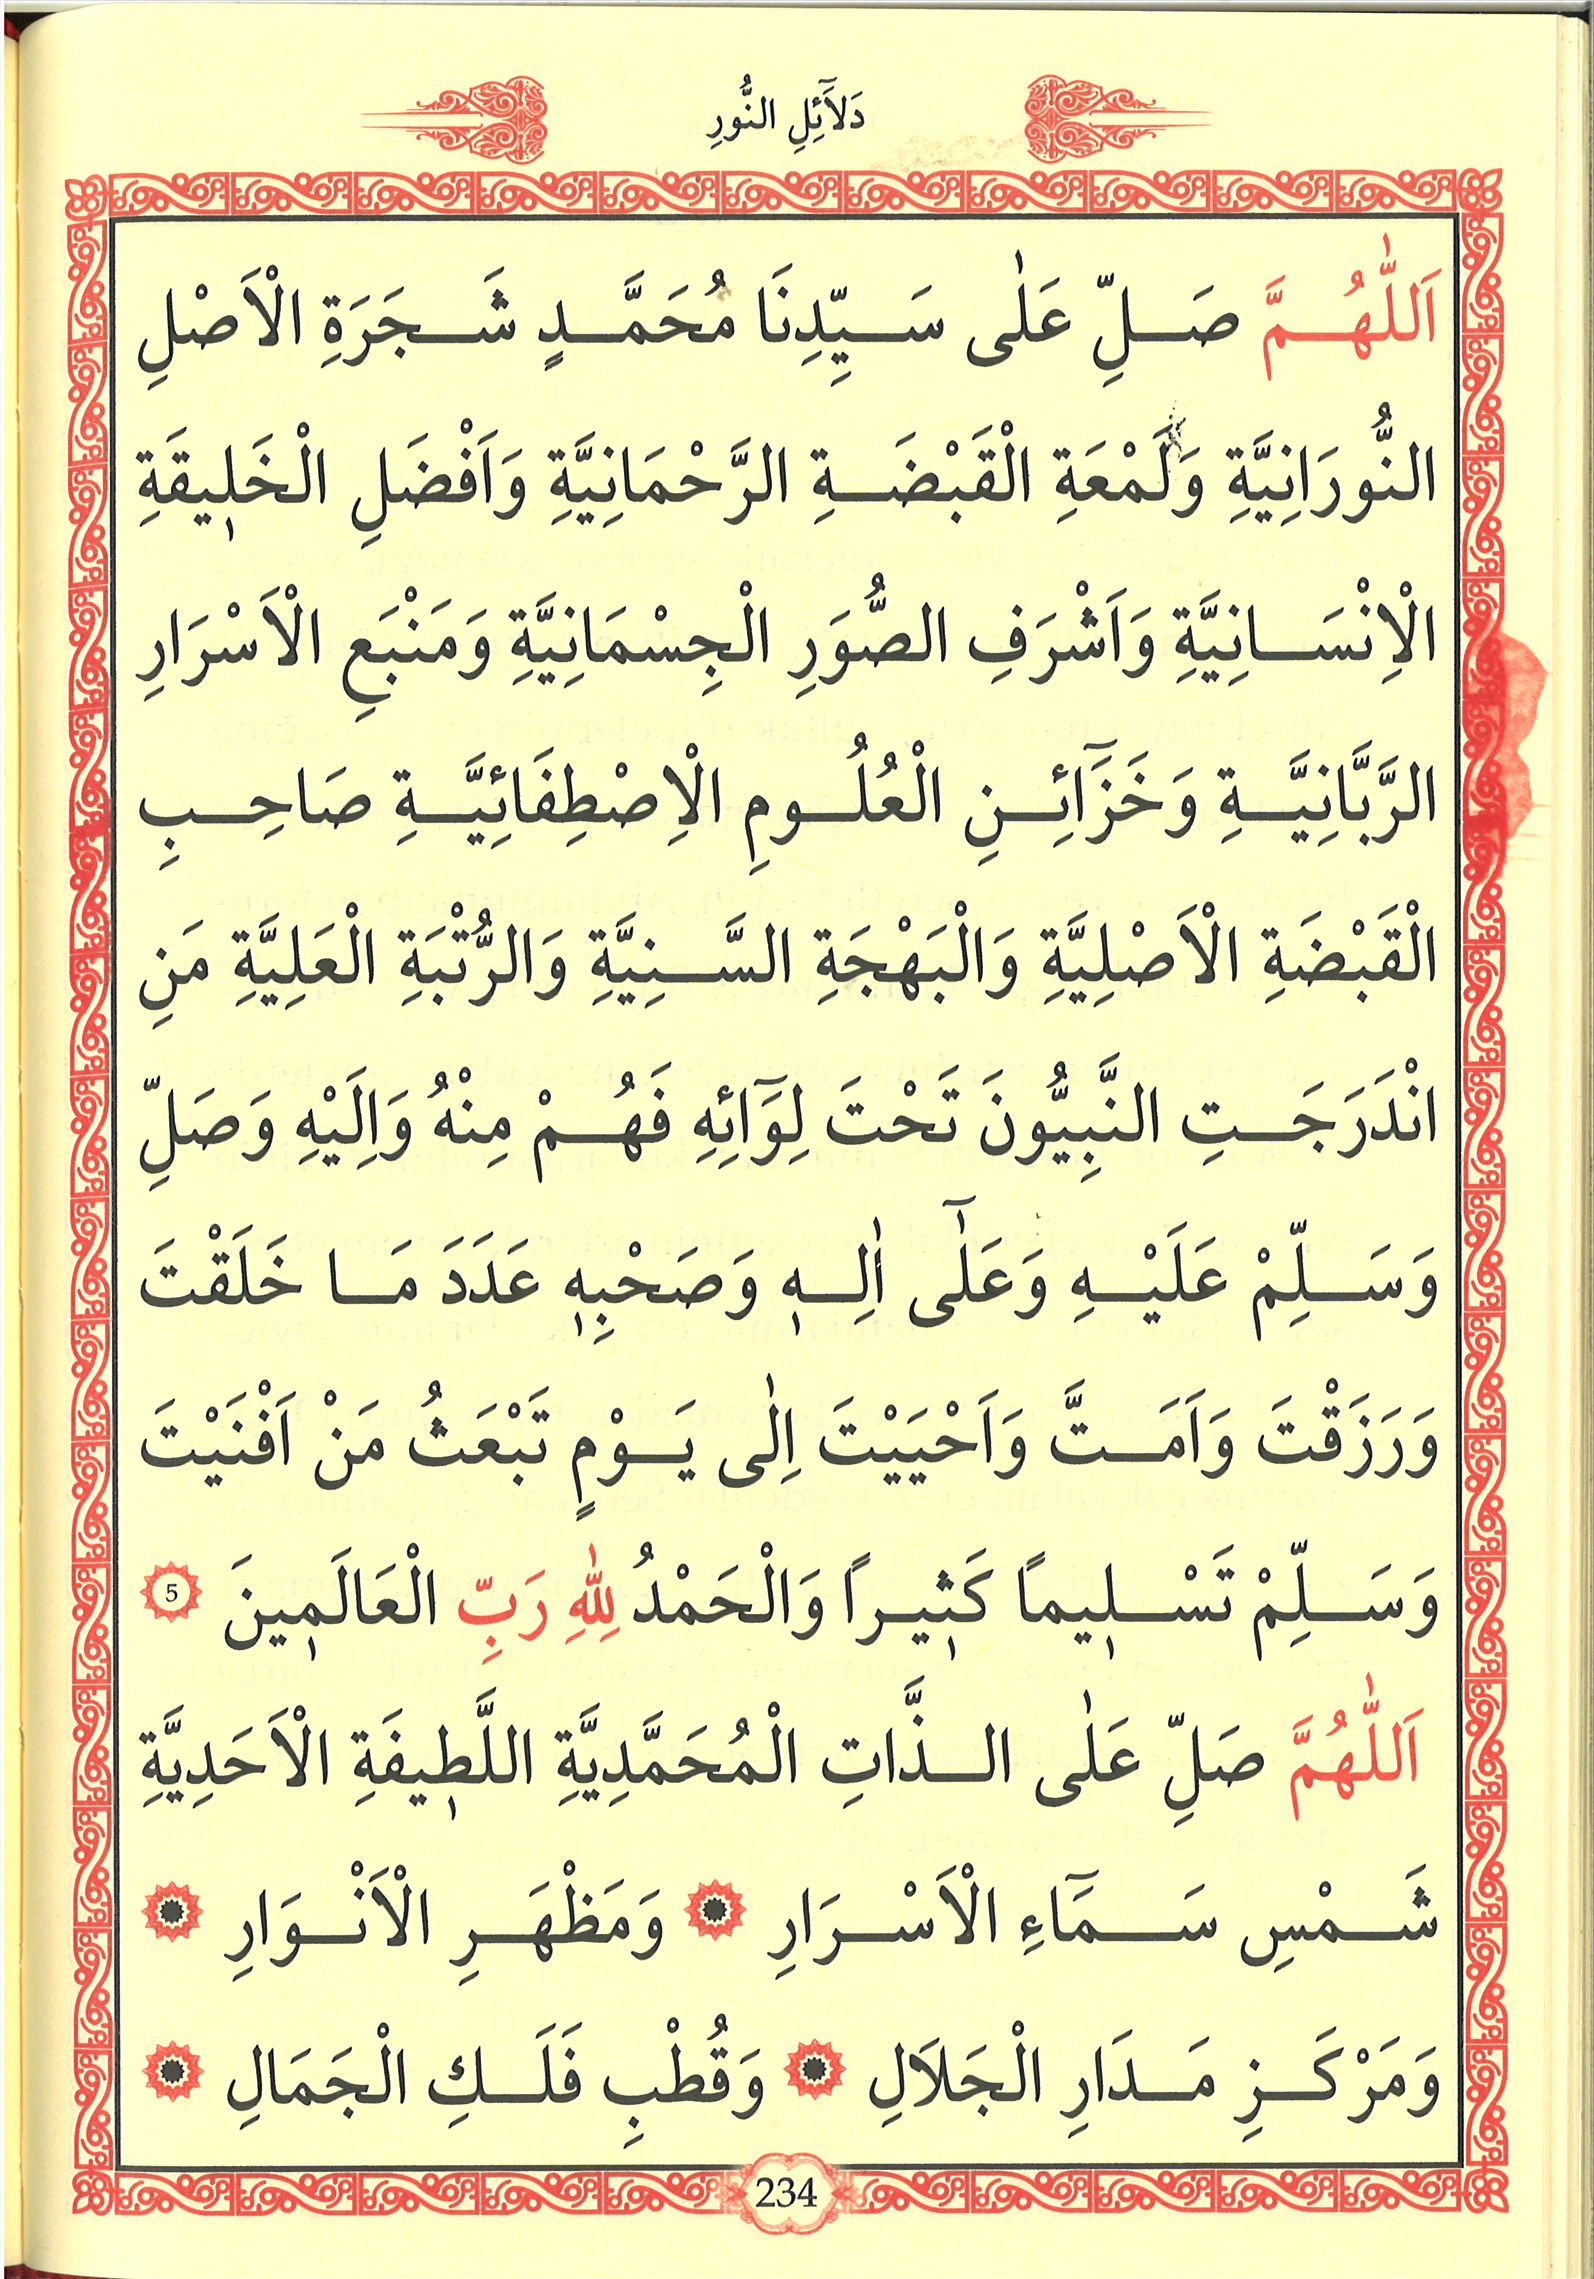 دَلَآئِلِ النُّورِ
اَللّٰهُمَّ صَلِّ عَلٰى سَيِّدِنَا مُحَمَّدٍ شَجَرَةِ الْاَصْلِ
النُّورَانِيَّةِ وَلَمْعَةِ الْقَبْضَةِ الرَّحْمَانِيَّةِ وَاَفْضَلِ الْخَلٖيقَةِ
الْاِنْسَانِيَّةِ وَاَشْرَفِ الصُّوَرِ الْجِسْمَانِيَّةِ وَمَنْبَعِ الْاَسْرَارِ
الرَّبَّانِيَّةِ وَخَزَآئِنِ الْعُلُومِ الْاِصْطِفَائِيَّةِ صَاحِبِ
الْقَبْضَةِ الْاَصْلِيَّةِ وَالْبَهْجَةِ السَّنِيَّةِ وَالرُّتْبَةِ الْعَلِيَّةِ مَنِ
انْدَرَجَتِ النَّبِيُّونَ تَحْتَ لِوَآئِهِ فَهُمْ مِنْهُ وَاِلَيْهِ وَصَلِّ
وَسَلِّمْ عَلَيْهِ وَعَلٰٓى اٰلِهٖ وَصَحْبِهٖ عَدَدَ مَا خَلَقْتَ
وَرَزَقْتَ وَاَمَتَّ وَاَحْيَيْتَ اِلٰى يَوْمِ تَبْعَثُ مَنْ اَفْنَيْتَ
وَسَلِّمْ تَسْلٖيمًا كَثٖيرًا وَالْحَمْدُ لِلّٰهِ رَبِّ الْعَالَمٖينَ 5
اَللّٰهُمَّ صَلِّ عَلٰى الذَّاتِ الْمُحَمَّدِيَّةِ اللَّطٖيفَةِ الْاَحَدِيَّةِ
شَمْسِ سَمَآءِ الْاَسْرَارِ ۞ وَمَظْهَرِ الْاَنْوَارِ ۞
وَمَرْكَزِ مَدَارِ الْجَلَالِ ۞ وَقُطْبِ فَلَكِ الْجَمَالِ ۞
234